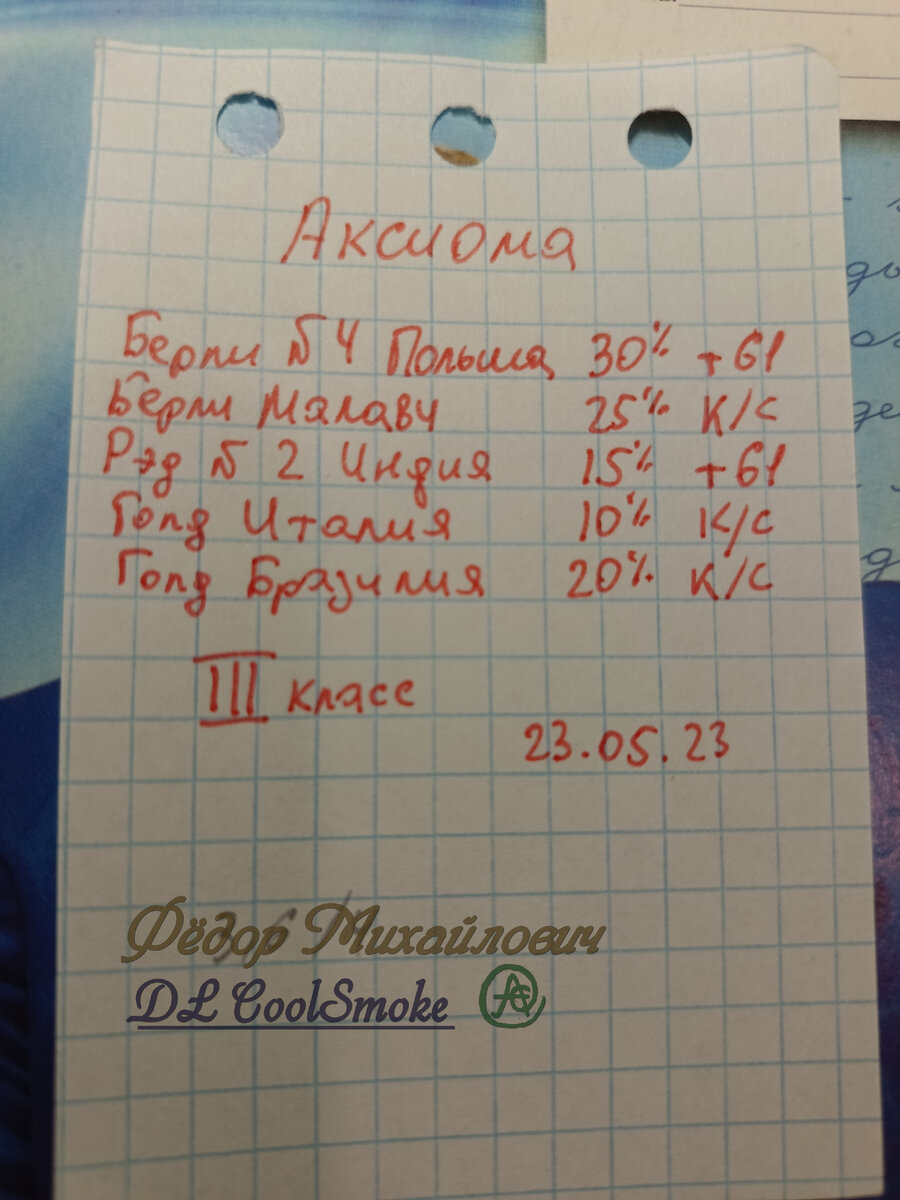 Аксиома
Берли №4 Польша 30% +61
Берли Малави 25% К/С
Рэд № 2 Индия 15% +61
Голд Италия 10% К/С
Голд Бразилия 20% К/С
III класс
23.05.23
Фёдор Михайлович
DL CoolSmoke